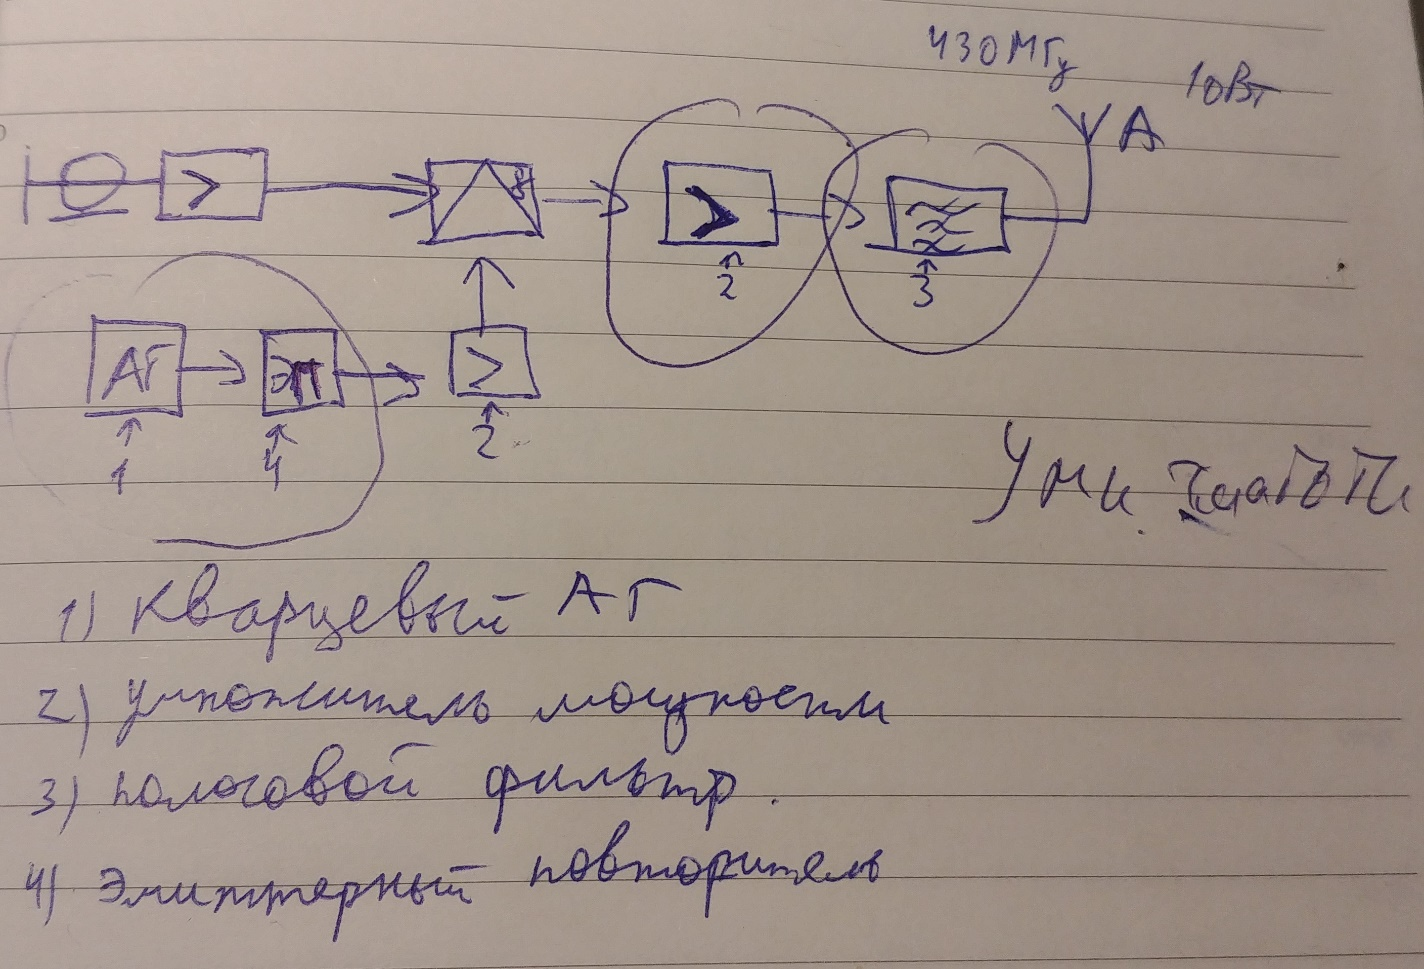 430 МГц
10Вт
А
2
3
АГ
ЭП
1
4
2
1) Кварцевый АГ
2) умножитель мощности
3) полосовой фильтр.
4) Эмиттерный повторитель